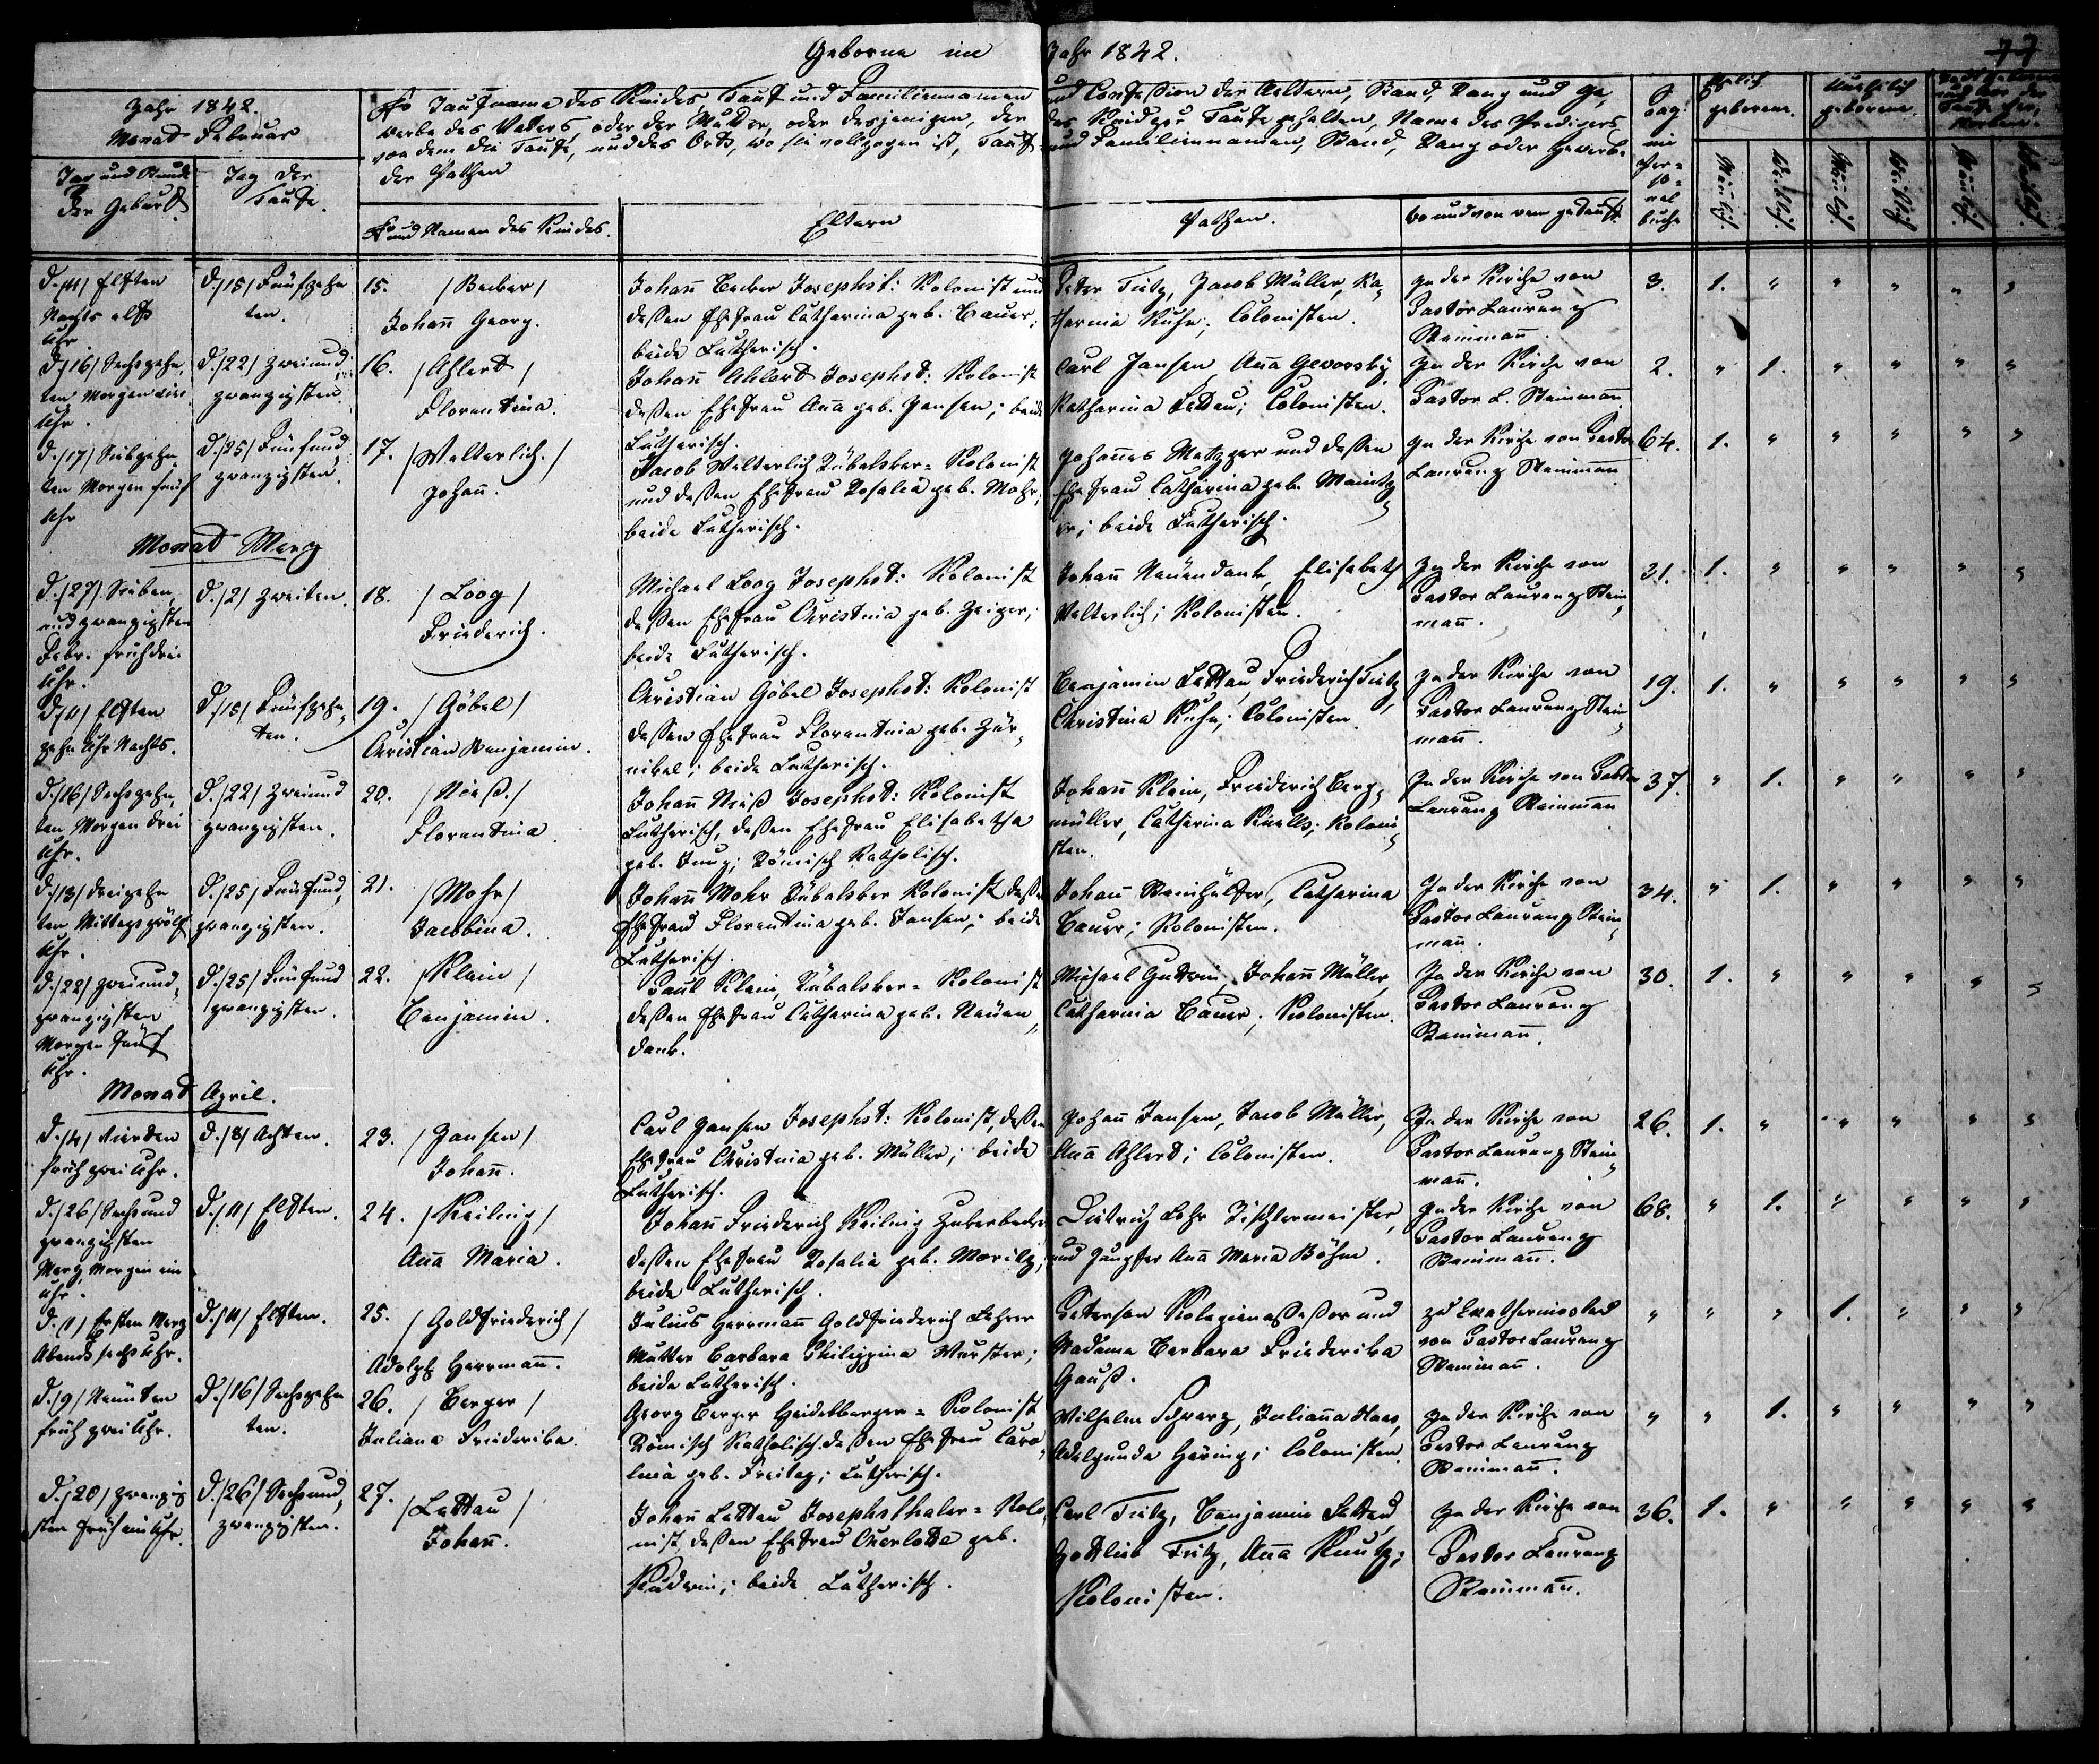 Geborne im Jahr 1842.
77
Jahr 1842.
Monat Februar
Tag und Stunde
der Geburt
Tag der
Taufe.
Taufname des Kindes, Tauf und Familiennamen
und Confession der Aeltern, Stand, Rang und Ge-
werbe des Vaters, oder der Mutter, oder desjenigen, der
das Kind zur Taufe gehalten, Name des Predigers
von dem die Taufe, und des Orts, wo sie vollzogen ist, Tauf-
und Familiennamen, Stand, Rang oder Gewerbe
der Pathen
und Namen des Kindes.
Eltern
Pathen.
wo und von wem getauft.
Pag:
im
Per-
so-
nal
buche
Ehelich
geborene.
Unehelich
geborene.
Männlich.
Weiblich.
Männlich.
Weiblich.
Männlich.
Weiblich.
d. /11/ Elften
Nachts elf
Uhr
d. /15/ Fünfzehn
ten.
15. /Becker/
Johañ Georg.
Johañ Becker Josephst: Kolonist und
deßen Ehefrau Catharina geb. Bauer;
beide Lutherisch.
Peter Tietz, Jacob Müller, Ka-
tharina Kuhn; Colonisten.
In der Kirche von
Pastor Laurenz
Steinmañ
3. 1. " " " " "
d. /16/ Sechszehn,
ten Morgen
Uhr.
d. /22/ Zweiund
zwanzigsten.
16. /Ahlert/
Florentina.
Johañ Ahlert Josephst: Kolonist
deßen Ehefrau Aña geb. Jansen; beide
Lutherisch.
Carl Jansen, Aña
Katharina Lettau; Colonisten.
In der Kirche von
Pastor L. Steinmañ
2. " 1. " " " "
d. /17/ Siebzehn,
ten Morgen fünf
Uhr
d. /25/ Fünfund
zwanzigsten.
17. /Welterlich./
Johañ.
Jacob Welterlich Rübalsker- Kolonist
und deßen Ehefrau Rosalia geb. Mohr;
beide Lutherisch.
Johannes Metzger und deßen
Ehefrau Catharina geb. Meintz
er; beide Lutherisch.
In der Kirche von Pastor
Laurenz Steinmañ
64. 1. " " " " "
Monat Merz
d. /27/ Sieben,
und zwanzigsten
Febr. früh drei
Uhr.
d. /2/ Zweiten.
18. /Loog/
Friederich.
Michael Loog Josephst: Kolonist
deßen Ehefrau Christina geb. Geiger;
beide Lutherisch.
Johañ Neuendank, Elisabeth
Welterlich; Kolonisten.
In der Kirche von
Pastor Laurenz Stein,
mañ.
31. 1. " " " " "
d. /11/ Elften
zehn Uhr Nachts.
d. /15/ Fünfzehn,
ten.
19. /Göbel/
Christian Benjamin.
Christian Göbel Josephst: Kolonist
deßen Ehefrau Florentina geb. Zür,
nikel; beide Lutherisch.
Benjamin Lettau, Friederich Tietz,
Christina Kuhn; Colonisten.
In der Kirche von
Pastor Laurenz Stein
mañ.
19. 1. " " " " "
d. /16/ Sechszehn,
ten Morgen drei
Uhr.
d. /22/ Zweiund
zwanzigsten.
20. /Nieß./
Florentina
Johañ Nieß Josephst: Kolonist
Lutherisch, deßen Ehefrau Elisabetha
geb. Jung; Römisch Katholisch.
Johañ Klein, Friederich Berg,
müller, Catharina Knells; Koloni,
sten.
In der Kirche von Pastor
Laurenz Steinmañ
37. " 1. " " " "
d. /13/ dreizehn
ten Mittags zwölf
Uhr.
d. /25/ Fünfund,
zwanzigsten.
21. /Mohr/
Jacobina.
Johañ Mohr Rübalsker Kolonist deßen
Ehefrau Florentina geb. Jansen; beide
Lutherisch.
Johañ Steinhülfer, Catharina
Bauer; Kolonisten.
In der Kirche von
Pastor Laurenz Stein,
mañ.
34. " 1. " " " "
d. /22/ zweiund,
zwanzigsten
Morgen fünf
Uhr.
d. /25/ Fünfund
zwanzigsten.
22. /Klein/
Benjamin.
Paul Klein, Rübalsker- Kolonist
deßen Ehefrau Catharina geb. Neuen,
dank.
Michael Gutwin, Johañ Müller,
Catharina Bauer; Kolonisten.
In der Kirche von
Pastor Laurenz
Steinmañ.
30. 1. " " " " "
Monat April.
d. /4/ Vierten
früh zwei Uhr.
d. /8/ Achten.
23. /Jansen/
Johañ.
Carl Jansen Josephst: Kolonist, deßen
Ehefrau Christina geb. Müller; beide
Lutherisch.
Johañ Jansen, Jacob Müller,
Aña Ahlert; Colonisten.
In der Kirche von
Pastor Laurenz Stein,
mañ.
26. 1. " " " " "
d. /26/ Sechsund
zwanzigsten
Merz, Morgen ein
Uhr.
d. /11/ Elften.
24. /Keilnig/
Aña Maria.
Johañ Friederich Keilnig
deßen Ehefrau Rosalia geb. Moritz,
beide Lutherisch.
Dietrich Lehr Tischlermeister,
und Jungfer Aña Maria Böhm.
In der Kirche von
Pastor Laurenz
Steinmañ.
68. " 1. " " " "
d. /1/ Ersten Merz
Abends sechs Uhr.
d. /11/ Elften.
25. /Goldfriederich/
Adolph Herrmañ.
Julius Herrmañ Goldfriederich Lehrer
Mutter Barbara Philippina Wurster;
beide Lutherisch.
Peterson Kolegienaßeßor und
Madame Barbara Friederika
Gauß.
zu Ekatherinoslav
von Pastor Laurenz
Steinmañ.
" " " 1. " " "
d. /9/ Neunten
früh zwei Uhr.
d. /16/ Sechszehn
ten.
26. /Berger/
Juliana Friederika.
Georg Berger Heidelberger- Kolonist
Römisch Katholisch deßen Ehefrau Caro,
lina geb. Freitag; Lutherisch.
Wilhelm Schwarz, Julianna Haas,
Adelgunda Hering; Colonisten.
In der Kirche von
Pastor Laurenz
Steinmañ.
" " 1. " " " "
d. /20/ zwanzig
sten früh ein Uhr.
d. /26/ Sechsund,
zwanzigsten.
27. /Lettau/
Johañ.
Johañ Lettau Josephsthaler- Kolo,
nist, deßen Ehefrau Charlotta geb.
Kudwin; beide Lutherisch.
Carl Tietz, Benjamin Lettau,
Gottlieb Tietz, Aña Kautz;
Kolonisten.
In der Kirche von
Pastor Laurenz
Steinmañ.
36. 1. " " " " "